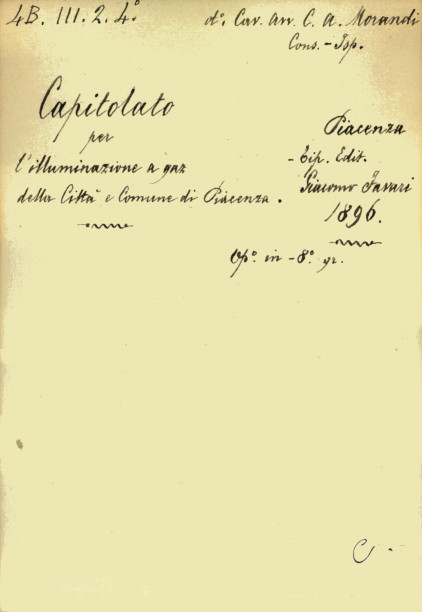 4B. III. 2. 4º.
dº. Cav. Avv. C. A. Morandi
Cons. - Isp.
Capitolato
per
l'illuminazione a gaz
della Città e Comune di Piacenza.
Piacenza
- Tip. Edit.
Giacomo Favari
1896.
Opº. in - 8º. gr.
C.